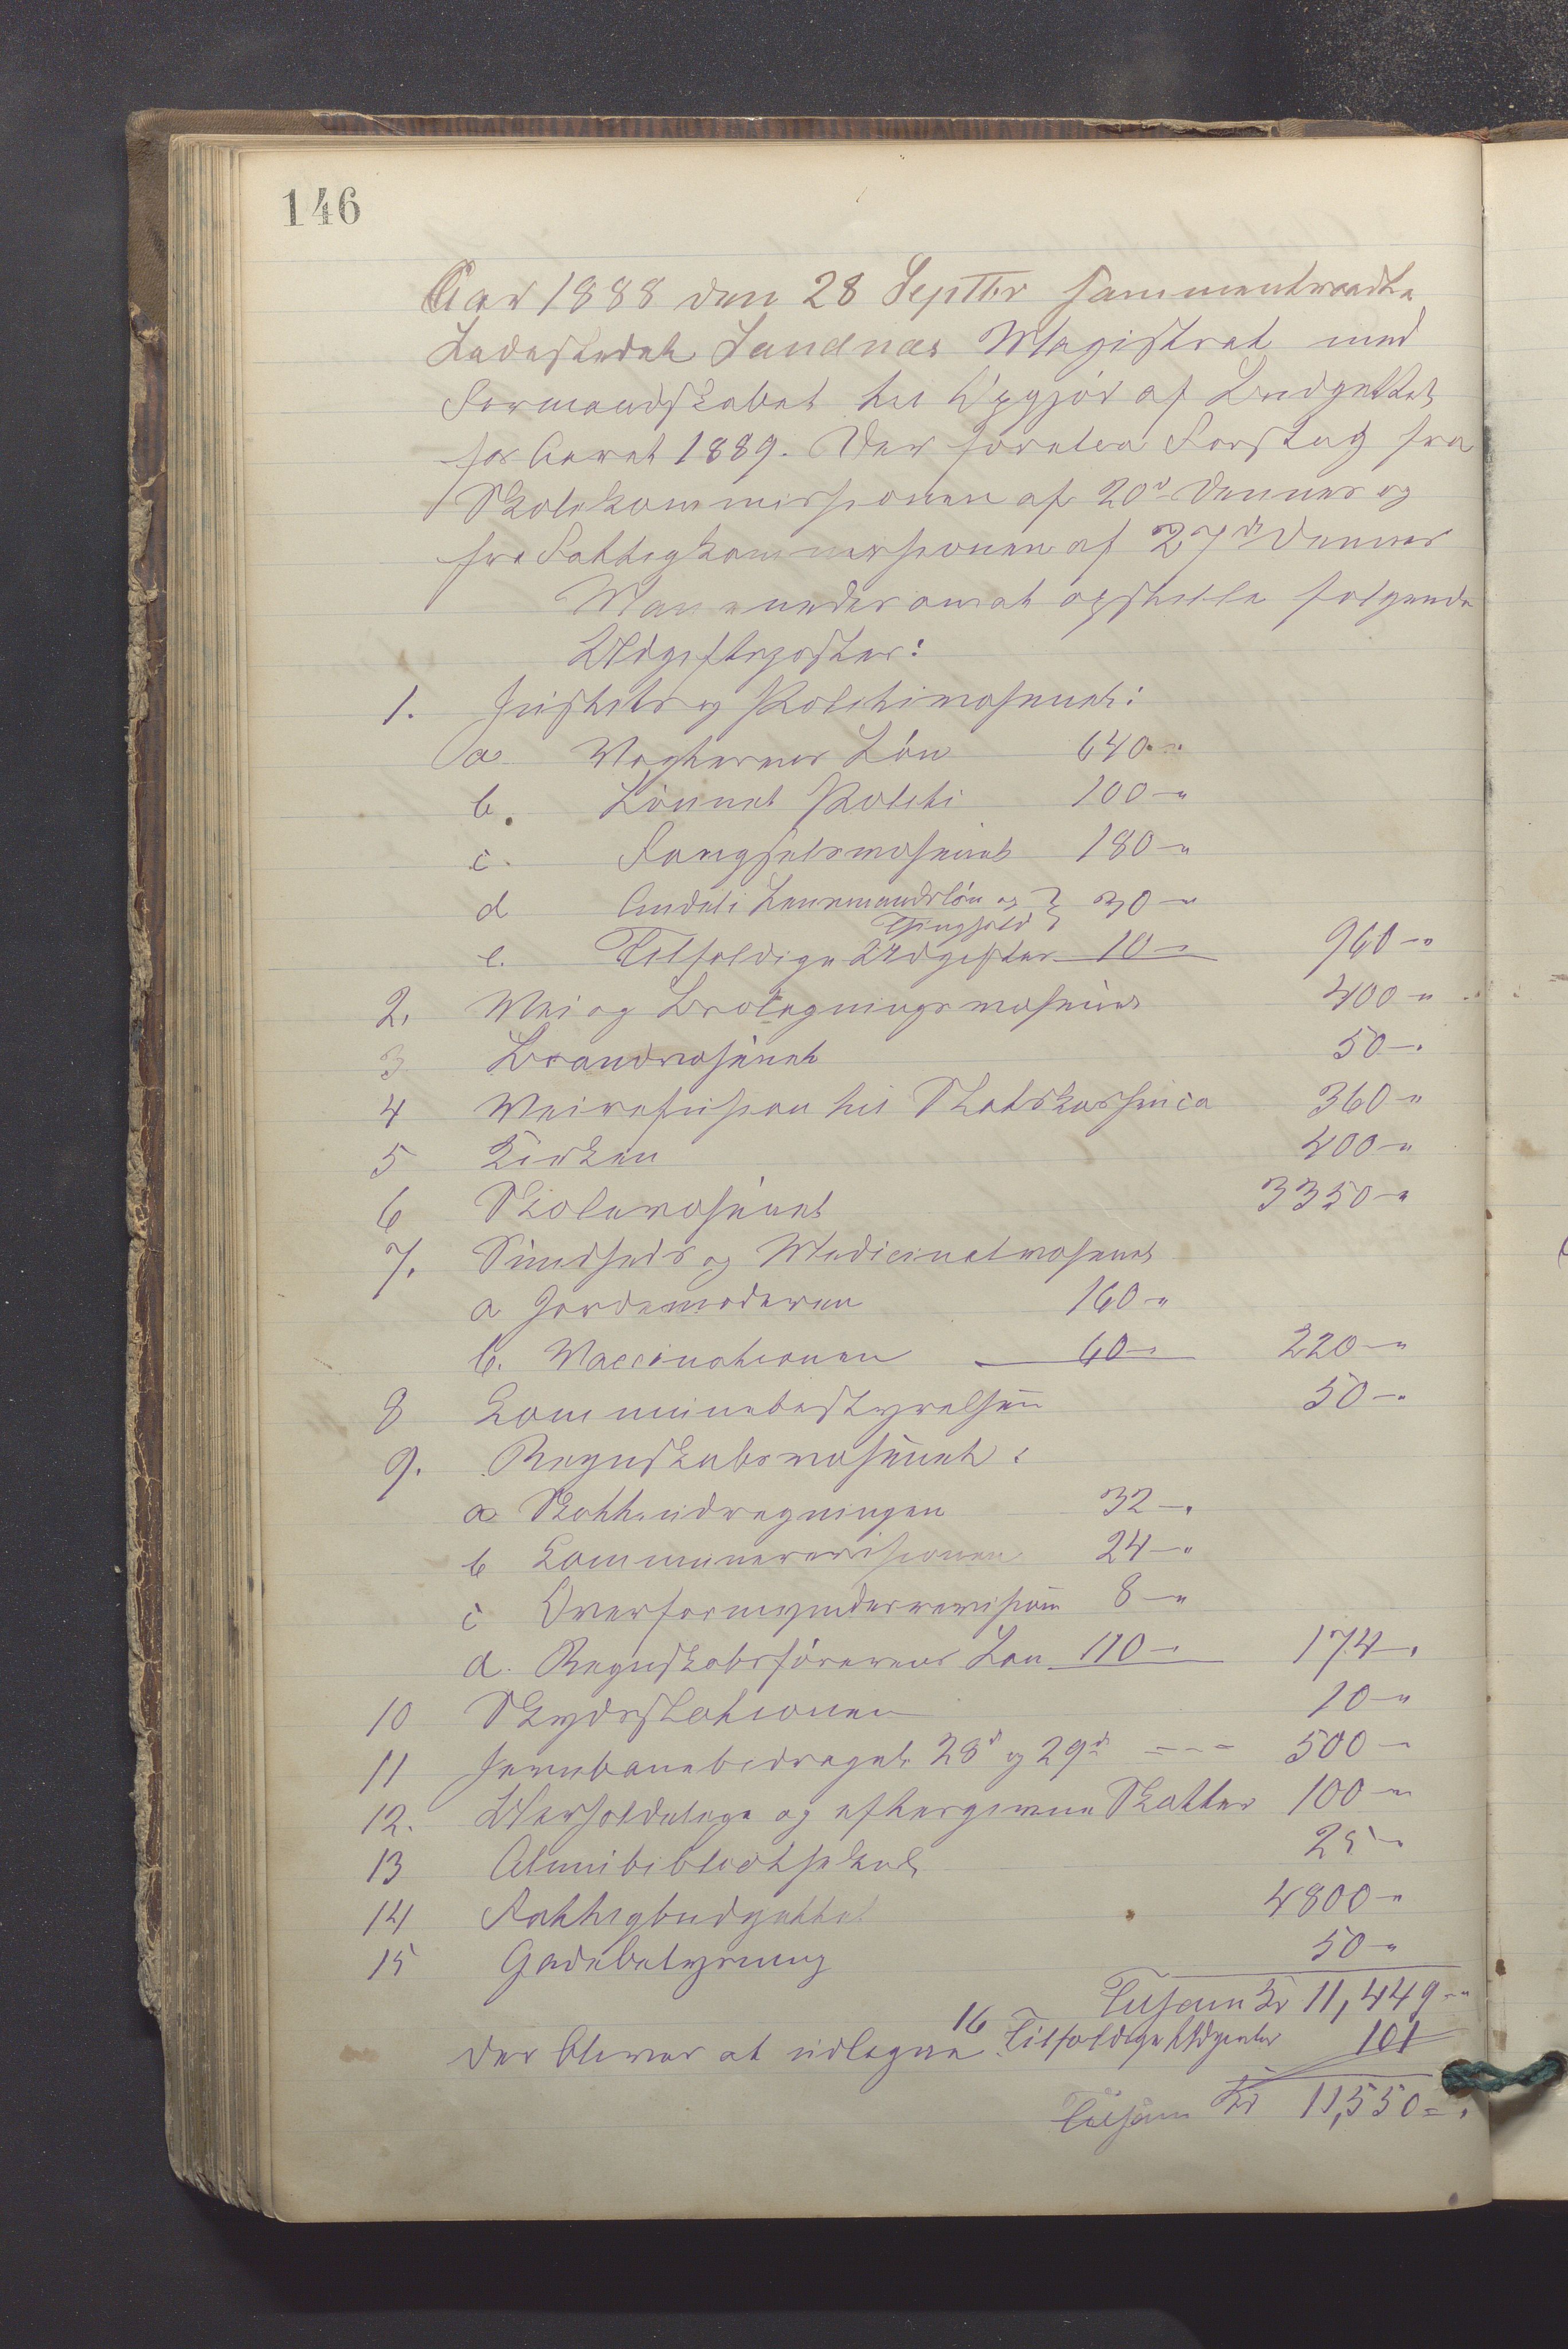 146
Aar 1888 den 28 Septbr sammentraadte
Ladestedet Sandnæs Magistrat med
Formandskabet til Opgjør af Budgettet
for Aaret 1889. Der forelaa Forslag fra
Skolekommissionen af 20de dennes og
fra Fattigkommissionen af 27de dennes
Man enedes om at opstille følgende
Udgiftsposter:
1. Justits og Politivæsenet:
a Vægternes Løn 640 - "
b. Lønnet Politi 100 - "
c. Fængselsvæsenet 180 - "
d Andel i Lensmandsløn og } 30 - "
Thinghold
e. Tilfældige Udgifter 10 - " 960 - "
2. Vei og Brolægningsvæsenet 400 - "
3 Brandvæsenet 50 - "
4 Veirefusion til Statskassen ca 360 - "
5 Kirken 400 - "
6 Skolevæsenet 3350 - "
7. Sundheds og Medicinalvæsenet
a Jordemoderen 160 - "
b. Vaccinationen 60 - " 220 - "
8 Kommunebestyrelsen 50 - "
9. Regnskabsvæsenet:
a Skatteudregningen 32 - "
b Kommunerevisionen 24 - "
c Overformynderrevision 8 - "
d. Regnskabsførerens Løn 110 - " 174 - "
10 Skydsstationen 10 - "
11 Jernbanebidraget 28d og 29d - - - 500 - "
12. Uerholdelige og eftergivne Skatter 100 - "
13 Almuebibliotheket 25 - "
14 Fattigbudgettet 4800 - "
15 Gadebelysning 50 - "
Tilsam Kr 11,449 - "
16 Tilfældige Udgifter 101
Der bliver at udlegne
Tilsam Kr 11,550 = "